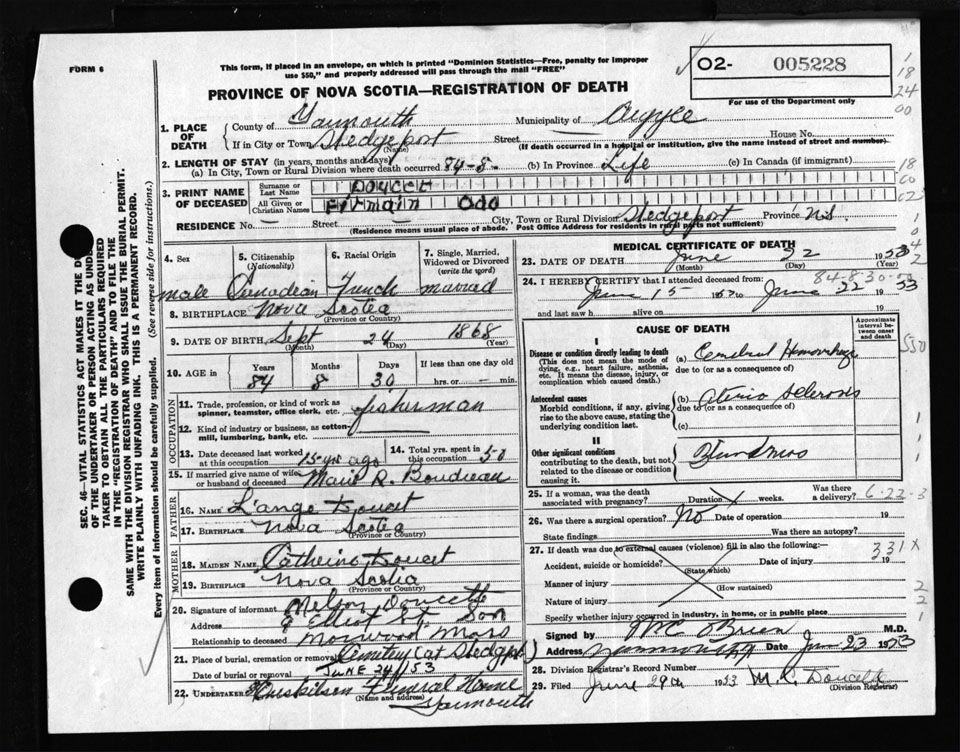 FORM 6
This form, if placed in an envelope, on which is printed "Dominion Statistics—Free, penalty for improper
use $50," and properly addressed will pass through the mail "FREE"
O2- 005228
For use of the Department only
PROVINCE OF NOVA SCOTIA—REGISTRATION OF DEATH
1. PLACE OF DEATH
County of Yarmouth Municipality of Argyle
If in City or Town Wedgeport Street House No.
(Name) (If death occurred in a hospital or institution, give the name instead of street and number)
2. LENGTH OF STAY (in years, months and days)
(a) In City, Town or Rural Division where death occurred 84-8- (b) In Province Life (c) In Canada (if immigrant)
3. PRINT NAME OF DECEASED
Surname or Last Name DOUCET
All Given or Christian Names Firmain Odo
RESIDENCE No. — Street — City, Town or Rural Division Wedgeport Province N.S.
(Residence means usual place of abode. Post Office Address for residents in rural parts not sufficient)
4. Sex 5. Citizenship (Nationality) 6. Racial Origin 7. Single, Married, Widowed or Divorced (write the word)
male Canadian French married
8. BIRTHPLACE Nova Scotia
(Province or Country)
9. DATE OF BIRTH Sept 24 1868
(Month) (Day) (Year)
10. AGE in Years Months Days If less than one day old
84 8 30 hrs. or — min.
OCCUPATION
11. Trade, profession, or kind of work as spinner, teamster, office clerk, etc. fisherman
12. Kind of industry or business, as cotton-mill, lumbering, bank, etc.
13. Date deceased last worked at this occupation 15 yrs ago 14. Total yrs. spent in this occupation 50
15. If married give name of wife or husband of deceased Marie R. Boudreau
FATHER
16. NAME L'ange Doucet
17. BIRTHPLACE Nova Scotia
(Province or Country)
MOTHER
18. MAIDEN NAME Catherine Doucet
19. BIRTHPLACE Nova Scotia
(Province or Country)
20. Signature of informant Nelson Doucette
Address 9 Elliot St.
Relationship to deceased Son
Norwood Mass
21. Place of burial, cremation or removal Cemetery (at Wedgeport)
Date of burial or removal JUNE 24/53
22. UNDERTAKER Funeral Home
(Name and address) Yarmouth
MEDICAL CERTIFICATE OF DEATH
23. DATE OF DEATH June 22 1953
(Month) (Day) (Year)
84-8-30-
24. I HEREBY CERTIFY that I attended deceased from:
June 15 19 to June 22 1953
and last saw h alive on 19
CAUSE OF DEATH
Approximate interval between onset and death
I
Disease or condition directly leading to death
(This does not mean the mode of dying, e.g., heart failure, asthenia, etc. It means the disease, injury, or complication which caused death.)
(a) Cerebral Hemorrhage
due to (or as a consequence of)
Antecedent causes
Morbid conditions, if any, giving rise to the above cause, stating the underlying condition last.
(b) Aterio Sclerosis
due to (or as a consequence of)
(c)
II
Other significant conditions
contributing to the death, but not related to the disease or condition causing it.
Blindness
25. If a woman, was the death associated with pregnancy? Duration weeks. Was there a delivery?
6-22-3
26. Was there a surgical operation? No Date of operation 19
State findings Was there an autopsy?
27. If death was due to external causes (violence) fill in also the following:—
331X
Accident, suicide or homicide? Date of injury 19
(State which)
Manner of injury
(How sustained)
Nature of injury
Specify whether injury occurred in industry, in home, or in public place
Signed by O'Brien M.D.
Address Yarmouth Date June 23 1953
28. Division Registrar's Record Number
29. Filed June 29th 1953 M. C. Doucette
(Division Registrar)
SEC. 46—VITAL STATISTICS ACT MAKES IT THE DU
OF THE UNDERTAKER OR PERSON ACTING AS UNDER
TAKER TO OBTAIN ALL THE PARTICULARS REQUIRED
IN THE "REGISTRATION OF DEATH" AND TO FILE THE
SAME WITH THE DIVISION REGISTRAR WHO SHALL ISSUE THE BURIAL PERMIT.
WRITE PLAINLY WITH UNFADING INK. THIS IS A PERMANENT RECORD.
Every item of information should be carefully supplied. (See reverse side for instructions.)
1
18
24
00
18